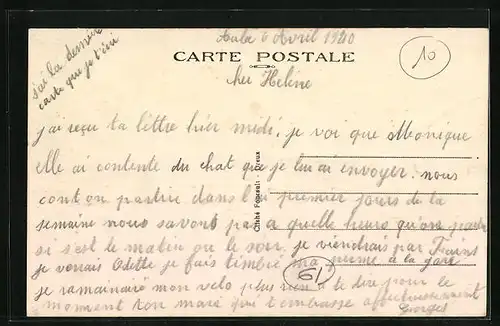 Aula 6 Avril 1940
CARTE POSTALE
10
j'ai la dernière
carte que je t'en
cher Helène
j'ai reçu ta lettre hier midi, je voi que Monique
elle ai contente du chat que je lui ai envoyer. nous
cont on partire dans les premier jours de la
semaine nous savont pas a quelle heure qu'on part
si s'est le matin ou le soir. je viendrais par Trains
je verrais Odette je fais timbré ma prème à la gare
61
je ramainaire mon velo plus rien a te dire pour le
moment ton mari qui t'embrasse affectueusement
Georges
Cliché Foucault Dreux